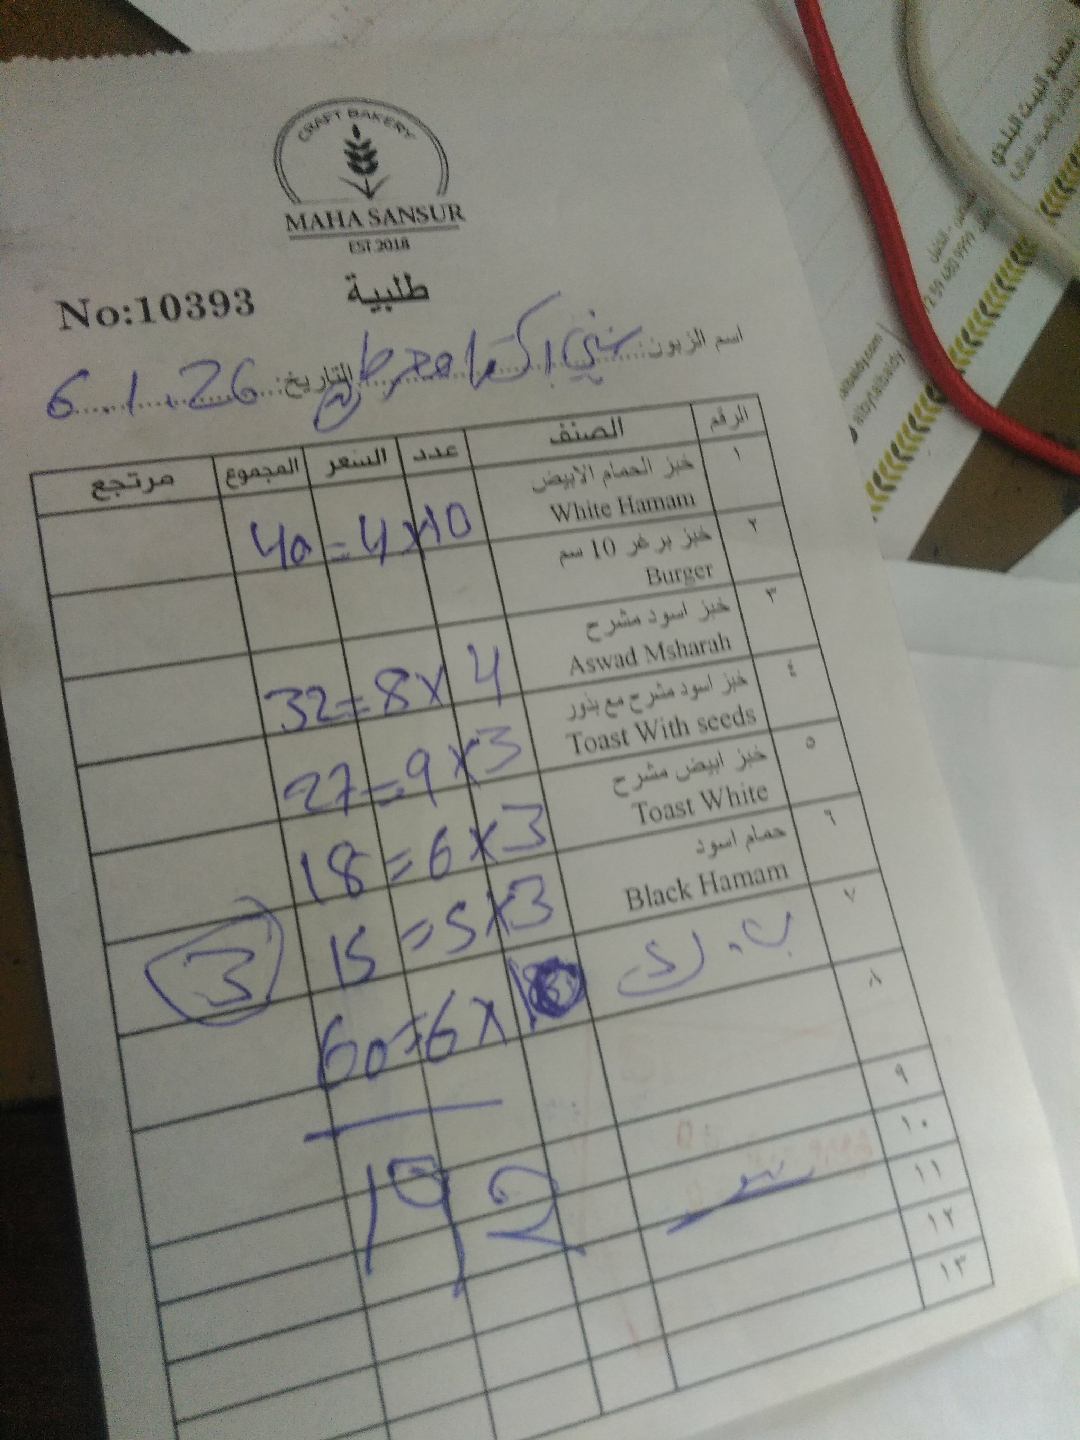 CRAFT BAKERY
MAHA SANSUR
EST 2018
No:10393
طلبية
اسم الزبون:
التاريخ: 6.1.26
الرقم الصنف عدد السعر المجموع مرتجع
١ خبز الحمام الابيض
White Hamam 40=4×10
٢ خبز برغر 10 سم
Burger
٣ خبز اسود مشرح
Aswad Msharah 32=8×4
٤ خبز اسود مشرح مع بذور
Toast With seeds 27=9×3
٥ خبز ابيض مشرح
Toast White 18=6×3
٦ حمام اسود
Black Hamam 15=5×3 3
٧ 60=6×10
٨
٩
١٠
192
١١
١٢
١٣
59 480 9999